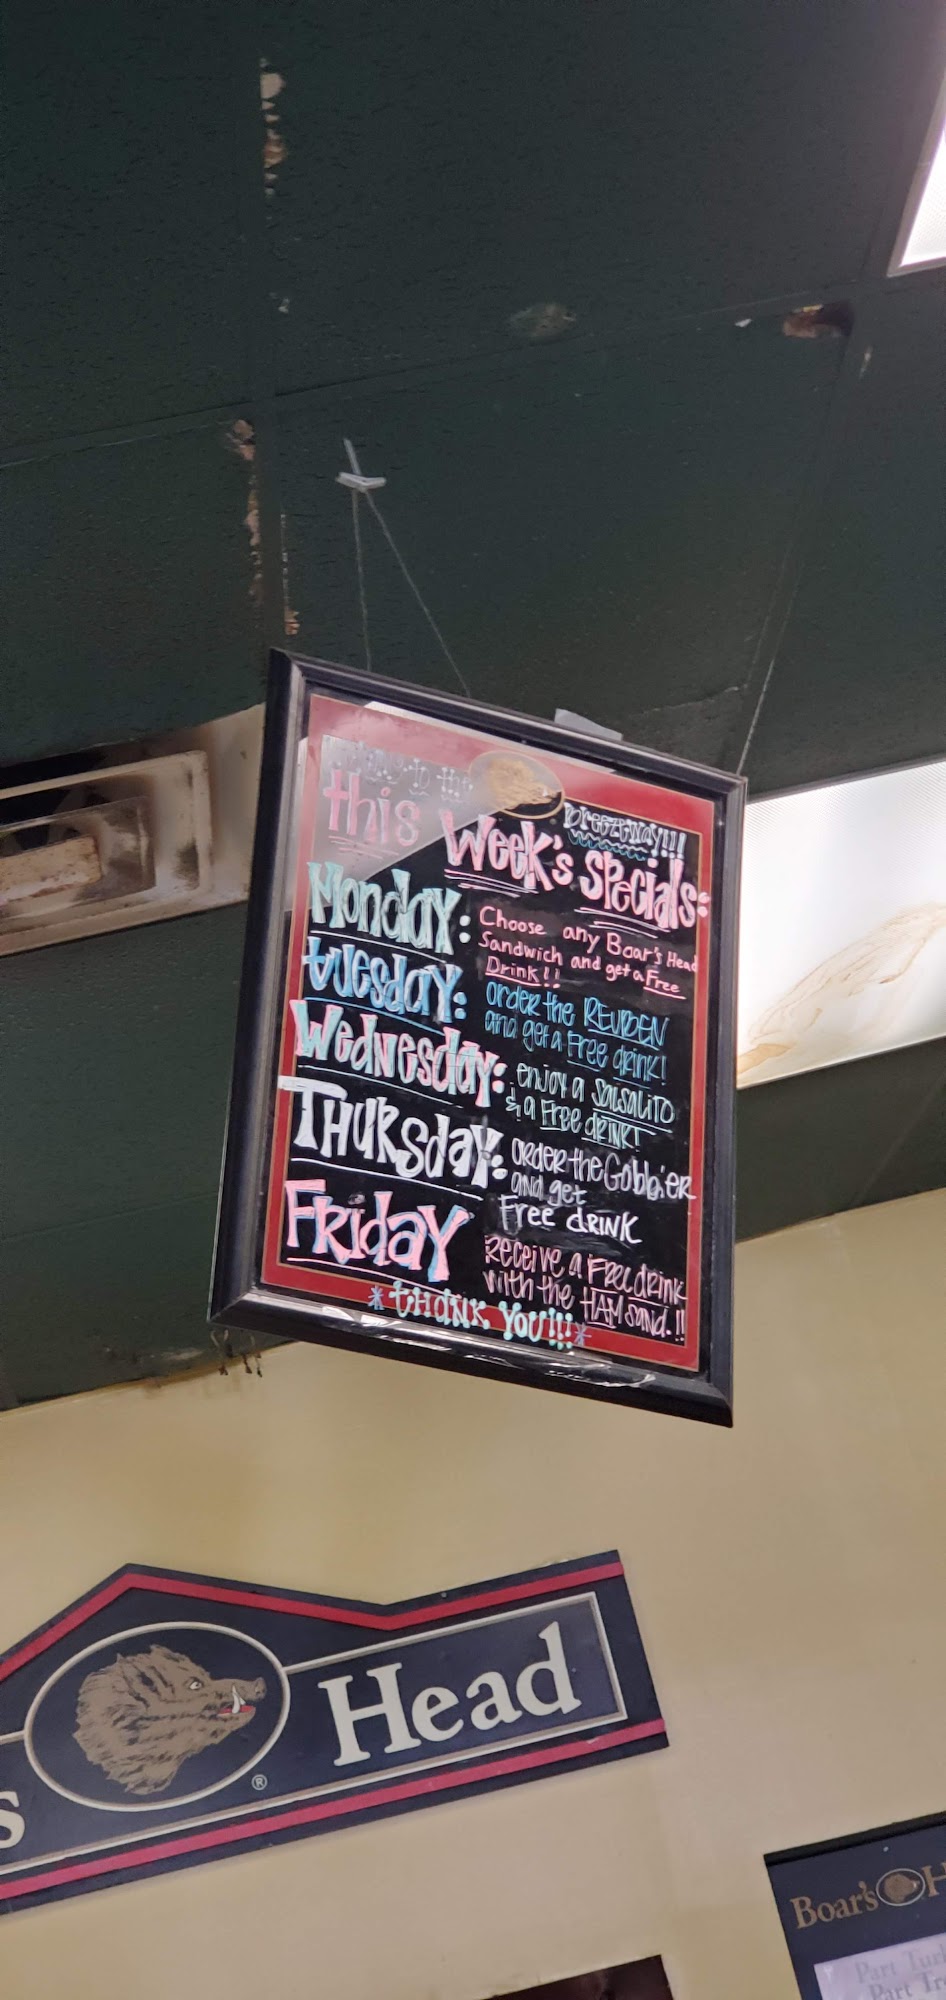 to the
breezeway!!!
this Week's Specials:
Monday: Choose any Boar's Head
Sandwich and get a Free
Drink!!
tuesday: order the REUBEN
and get a Free drink!
Wednesday: enjoy a SalsaLITO
& a Free drink!
THURSday: ORDER the Gobbler
and get
Free dRINK
FRIdaY Receive a FREE drink
with the HAM sand.!!
*thank you!!!*
s Head
®
Boar's H
Part Tur
Part Tr